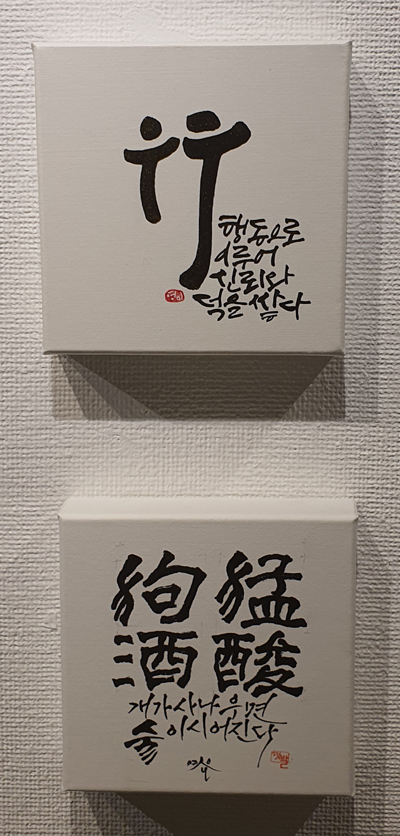 行
행동으로
이루어
신뢰와
덕을 쌓다
狗猛
酒酸
개가 사나우면
술이 시어진다